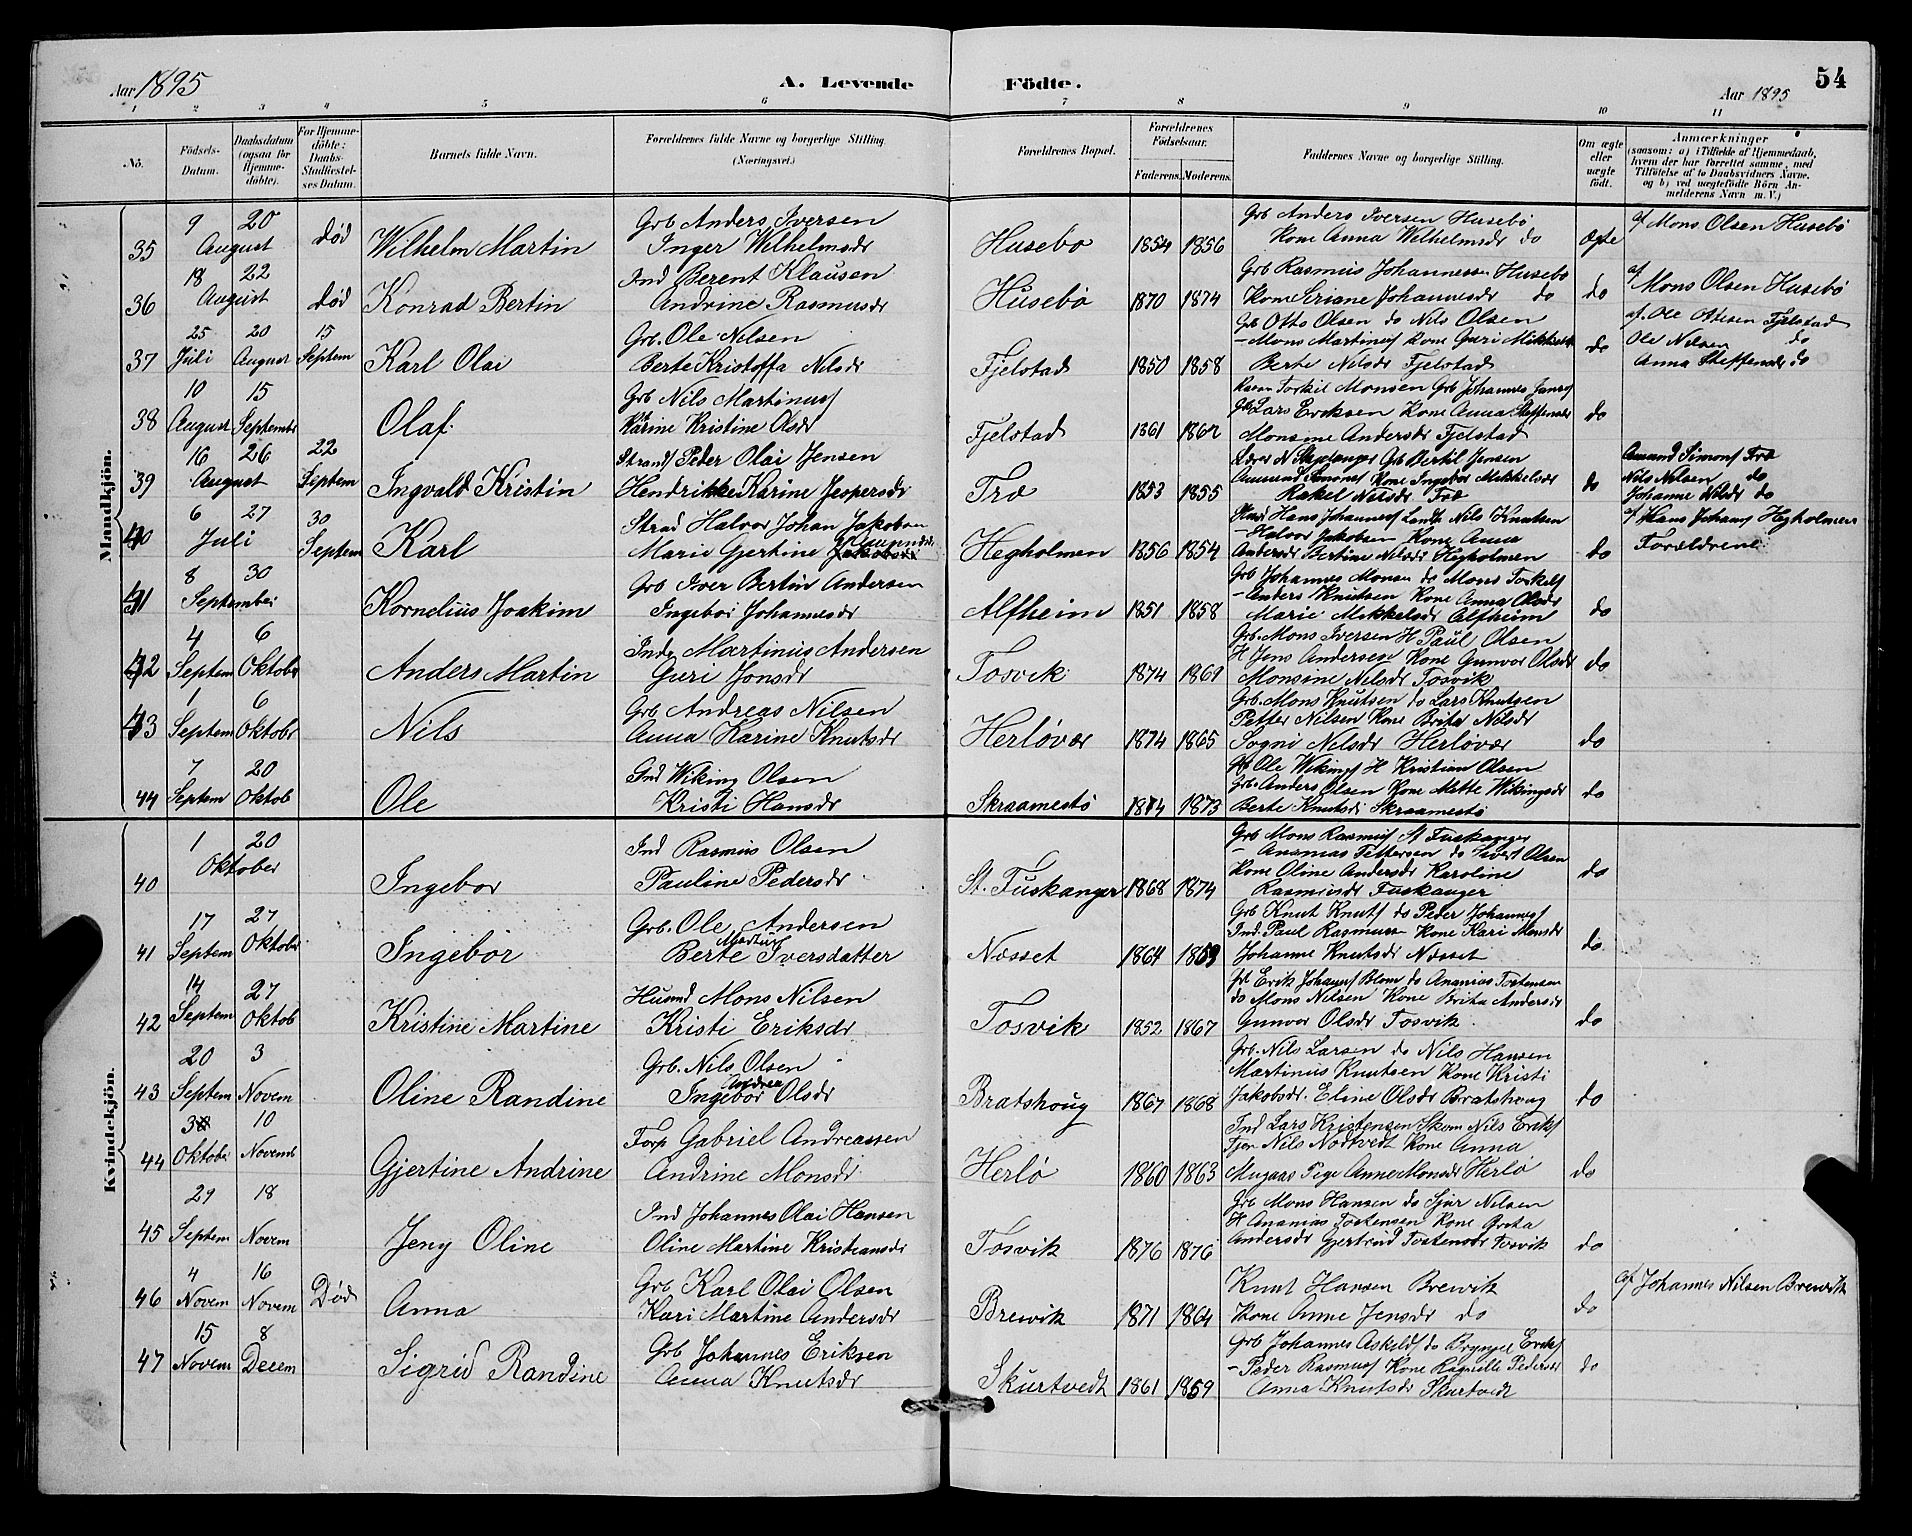 Aar 1895
A. Levende Födte.
Aar 1895
54
1 2 3 4 5 6 7 8 9 10 11
No.
Födsels-Datum.
Daabsdatum (ogsaa for Hjemme-döbte).
For Hjemme-döbte: Daabs-Stadfæstel-ses Datum.
Barnets fulde Navn.
Forældrenes fulde Navne og borgerlige Stilling. (Næringsvei.)
Forældrenes Bopæl.
Forældrenes Födselsaar.
Faderens. Moderens.
Faddernes Navne og borgerlige Stilling.
Om ægte eller uægte födt.
Anmærkninger (saasom: a) i Tilfælde af Hjemmedaab, hvem der har forrettet samme, med Tilföielse af to Daabsvidners Navne, og b) ved uægtefödte Börn An-melderens Navn m. V.)
Mandkjön.
35 9 August 20 død Wilhelm Martin
Grb Anders Iversen
Inger Wilhelmsdr
Husebø 1854 1856
Grb Anders Iversen Husebö
Kone Anna Wilhelmsdr do
Ægte
af Mons Olsen Husebö
36 18 August 22 død Konrad Bertin
Ind Berent Klausen
Andrine Rasmusdr
Husebø 1870 1874
Grb Rasmus Johannessen Husebö
Kone Seriane Johannesdr do
do
af Mons Olsen Husebö
37 25 Juli 20 August 15 Septem Karl Olai
Grb. Ole Nilsen
Berte Kristoffa Nilsdr
Fjelstad 1850 1858
Grb Otto Olsen do Nils Olsen
- Mons Martinus Kone Guri Mikkelsdr
Berte Nilsdr Fjelstad
do
af. Ole Olesen Fjelstad
Ole Nilsen do
Anna Steffensdr do
38 10 August 15 September Olaf.
Grb Nils Martinus
Karine Kristine Olsdr
Fjelstad 1861 1862
Torkil Monsen Grb Johannes
Grb Lars Eriksen Kone Anna Steffensdr
Monsine Andersdr Fjelstad
do
39 16 August 26 22 Septem Ingvald Kristin
Strands Peder Olai Jensen
Hendrikke Karine Jespersdr
Træ 1853 1855
Grb Bertil Jensen
Amund Simons Kone Ingebor Mikkelsdr
Rakel Nilsdr Træ
do
Amund Simons Træ
Nils Nilsen do
Johanne Nilsdr do
40 6 Juli 27 30 Septem Karl
Strad Halvor Johan Jakobsen
Marie Gjertine
Hegholmen 1856 1854
Hans Johannes Nils Knutsen
- Halvor Jakobsen Kone Anna
Andersdr Bertine Nilsdr Hegholmen
do
af Hans Johans Hegholmen
Forældrene
41 8 September 30 Kornelius Joakim
Grb Iver Bertin Andersen
Ingebor Johannesdr
Alfheim 1851 1858
Grb Johannes Monsen do Mons Torkels
- Anders Knutsen Kone Anna Olsdr
Marie Mikkelsdr Alfheim
do
42 4 Septem 6 Oktober Anders Martin
Inds Martinus Andersen
Guri Jonsdr
Tosvik 1874 1869
Grb. Mons Iversen H Paul Olsen
H Jens Andersen Kone Gunvor Olsdr
Monsine Nilsdr Tosvik
do
43 1 Septem 6 Oktobr Nils
Grb Andreas Nilsen
Anna Karine Knutsdr
Herløvær 1874 1865
Grb. Mons Knutsen do Lars Knutsen
Petter Nilsen Kone Brita Nilsdr
Sogni Nilsdr Herløvær
do
44 7 Septem 20 Oktob Ole
Ind Wiking Olsen
Kristi Hansdr
Skraamestö 1874 1873
Ole Wikings H Kristian Olsen
Grb. Anders Olsen Kone Mette Wikingsdr
Berte Knutsdr Skraamestö
do
Kvindekjön.
40 1 Oktober 20 Ingebor
Ind Rasmus Olsen
Pauline Pedersdr
St. Fuskanger 1868 1874
Grb Mons Rasmus St Fuskanger
- Ananias Pettersen do Sivert Olsen
Kone Oline Andersdr Karoline
Rasmusdr Fuskanger
do
41 17 Septem 27 Oktober Ingebor
Grb. Ole Andersen
Berte Martine Iversdatter
Næsset 1864 1859
Grb Knut Knuts do Peder Johannes
Ind. Paul Rasmussen Kone Kari Monsdr
Johanne Knutsdr Næsset
do
42 14 Septem 27 Oktob Kristine Martine
Husmd Mons Nilsen
Kristi Eriksdr
Tosvik 1852 1867
Erik Johans Blom do Ananias Tostensen
do Mons Nilsen Kone Brita Andersdr
Gunvor Olsdr Tosvik
do
43 20 Septem 3 Novem Oline Randine
Grb. Nils Olsen
Ingebor Andrea Olsdr
Bratshoug 1867 1868
Grb. Nils Larsen do Nils Hansen
Martinus Knutsen Kone Kristi
Jakobsdr. Eline Olsdr Bratshoug
do
44 3 Oktober 10 Novemb Gjertine Andrine
Forp Gabriel Andreassen
Andrine Monsdr
Herlø 1860 1863
Ind Lars Kristensen Skom Nils Eriks
Nils Nodtvedt Kone Anna
Pige Anne Monsdr Herlø
do
45 29 Septem 18 Novem Jeny Oline
Ind Johannes Olai Hansen
Oline Martine Kristiansdr
Tosvik 1876 1876
Grb Mons Hansen do Sjur Nilsen
H Ananias Tostensen Kone Brita
Andersdr Gjertrud Tostensdr Tosvik
do
46 4 Novem 16 Novem Død Anna
Grb Karl Olai Olsen
Kari Martine Andersdr
Brewik 1871 1864
Knut Hansen Brewik
Kone Anne Jensdr do
do
af Johannes Nilsen Brewik
47 15 Novem 8 Decem Sigrid Randine
Grb Johannes Eriksen
Anna Knutsdr
Skurtvedt 1861 1859
Grb Johannes Askelds do Brynjel Eriks
- Peder Rasmus Kone Ragnilde Pedersdr
Anna Knutsdr Skurtvedt
do